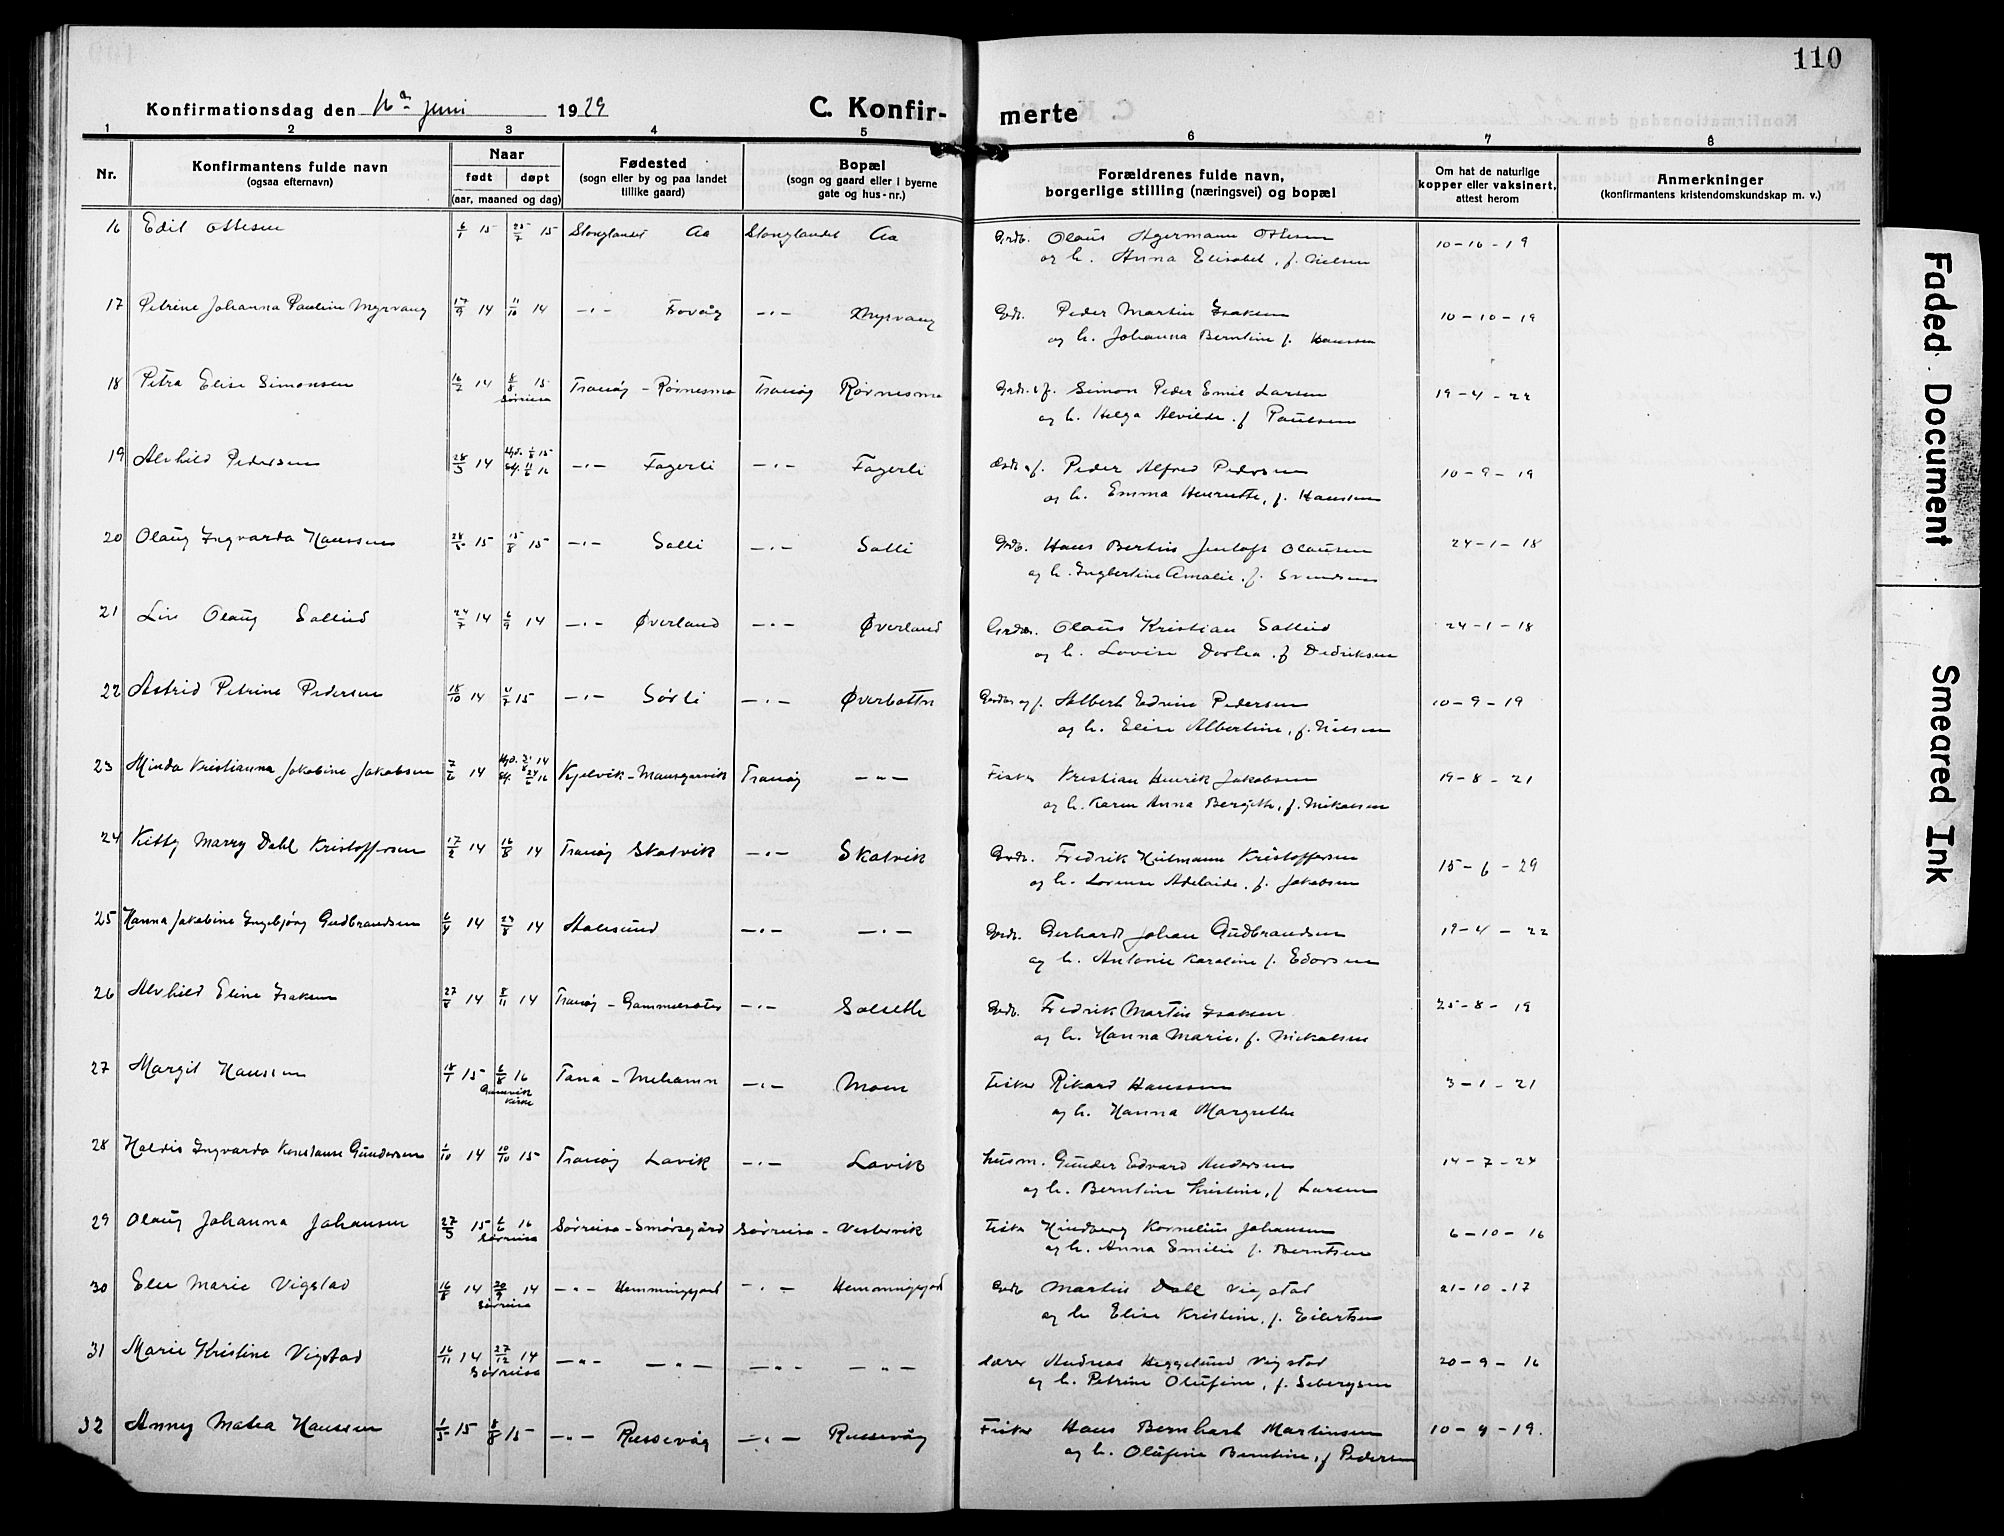 110
Konfirmationsdag den 16de juni 1929
C. Konfir- merte
1 2 3 4 5 6 7 8
Nr.
Konfirmantens fulde navn
(ogsaa efternavn)
Naar
født døpt
(aar, maaned og dag)
Fødested
(sogn eller by og paa landet
tillike gaard)
Bopæl
(sogn og gaard eller i byerne
gate og hus-nr.)
Forældrenes fulde navn,
borgerlige stilling (næringsvei) og bopæl
Om hat de naturlige
kopper eller vaksinert,
attest herom
Anmerkninger
(konfirmantens kristendomskundskap m. v.)
16 Edit Ottesen 6/1 15 25/7 15 Stonglandet Aa Stonglandet Aa Grdb. Olaus Agermann Ottesen 10-16-19
og h. Anna Elisabet, f. Nielsen
17 Petrine Johanna Pauline Myrvang 17/9 14 11/10 14 -"- Frovåg -"- Myrvang Grdb. Peder Martin Isaksen 10-10-19
og h. Johanna Berntine f. Hanssen
18 Petra Elise Simonsen 16/2 14 8/8 15 Tranøy - Rørnesmo Tranøy Rørnesmo Grdb. & f. Simon Peder Emil Larsen 19-4-22
Sørreisa
og h. Helga Alvilde f. Paulsen
19 Alvhild Pedersen 28/5 14 -"- Fagerli -"- Fagerli Peder Alfred Pedersen 10-9-19
og h. Emma Henriette, f. Hanssen
20 Olaug Ingvarda Hanssen 28/5 15 15/8 15 -"- Solli -"- Solli Grdb. Hans Bertin Jentoft Olausen 24-1-18
og h. Ingbertine Amalie f. Svendsen
21 Liv Olaug Sollied 24/7 14 6/9 14 -"- Øverland -"- Øverland Grdb. Olaus Kristian Sollied 24-1-18
og h. Lovise Dortea f. Dedriksen
22 Astrid Petrine Pedersen 18/10 14 4/7 15 -"- Sørli -"- Øverbotten Grdb. og f. Albert Edvin Pedersen 10-9-19
og h. Elise Albertine, f. Nilsen
23 Minda Kristianna Jakobine Jakobsen 7/6 14 Kjelvik - Mansgarvik Tranøy -"- Fisker Kristian Henrik Jakobsen 19-8-21
og h. Karen Anna Bergitte, f. Nikolsen
24 Kitty Marry Dahl Kristoffersen 17/2 14 16/8 14 Tranøy Skatvik -"- Skatvik Grdb. Fredrik Hilmann Kristoffersen 15-6-29
og h. Lorense Adelaide, f. Jakobsen
25 Hanna Jakobine Ingebjørg Gudbrandsen 6/4 14 23/8 14 Aalesund -"- -"- Grdb. Gerhard Johan Gudbrandsen 19-4-22
og h. Antonie Karoline f. Edvardsen
26 Alvhild Eline Isaksen 27/8 14 8/11 14 Tranøy - Gammelseter -"- Solseth Grdb. Fredrik Martin Isaksen 25-8-19
og h. Hanna Marie, f. Nikolsen
27 Margit Hanssen 18/1 15 6/8 16 Tana - Mehamn -"- Moen Fisker Rikard Hanssen 3-1-21
kirke
og h. Hanna Margrethe
28 Haldis Ingvarda Konstanse Gundersen 1/10 14 10/10 15 Tranøy Lavik -"- Lavik husm. Gunder Edvard Andersen 14-7-24
og h. Berntine Kristine, f. Larsen
29 Olaug Johanna Johansen 27/5 15 16 Sørreisa - Smørsgård Sørreisa - Vestervik Fisker Hindberg Kornelius Johansen 6-10-16
Sørreisa
og h. Anna Emilie f. Berntsen
30 Elen Marie Vigstad 16/8 14 20/9 14 -"- Hemmingjord -"- Hemmingjord Grdb. Martin Dall Vigstad 21-10-17
Sørreisa
og h. Elise Kristine, f. Eilertsen
31 Marie Kristine Vigstad 16/11 14 27/12 14 -"- -"- -"- -"- Lærer Andreas Heggelund Vigstad 20-9-16
Sørreisa
og h. Petrine Olufine, f. Sebergsen
32 Anny Matea Hanssen 1/5 15 8/8 15 -"- Russevåg -"- Russevåg Fisker Hans Bernhart Martinsen 10-9-19.
og h. Olufine Berntine, f. Pedersen
Faded Document
Smeared Ink